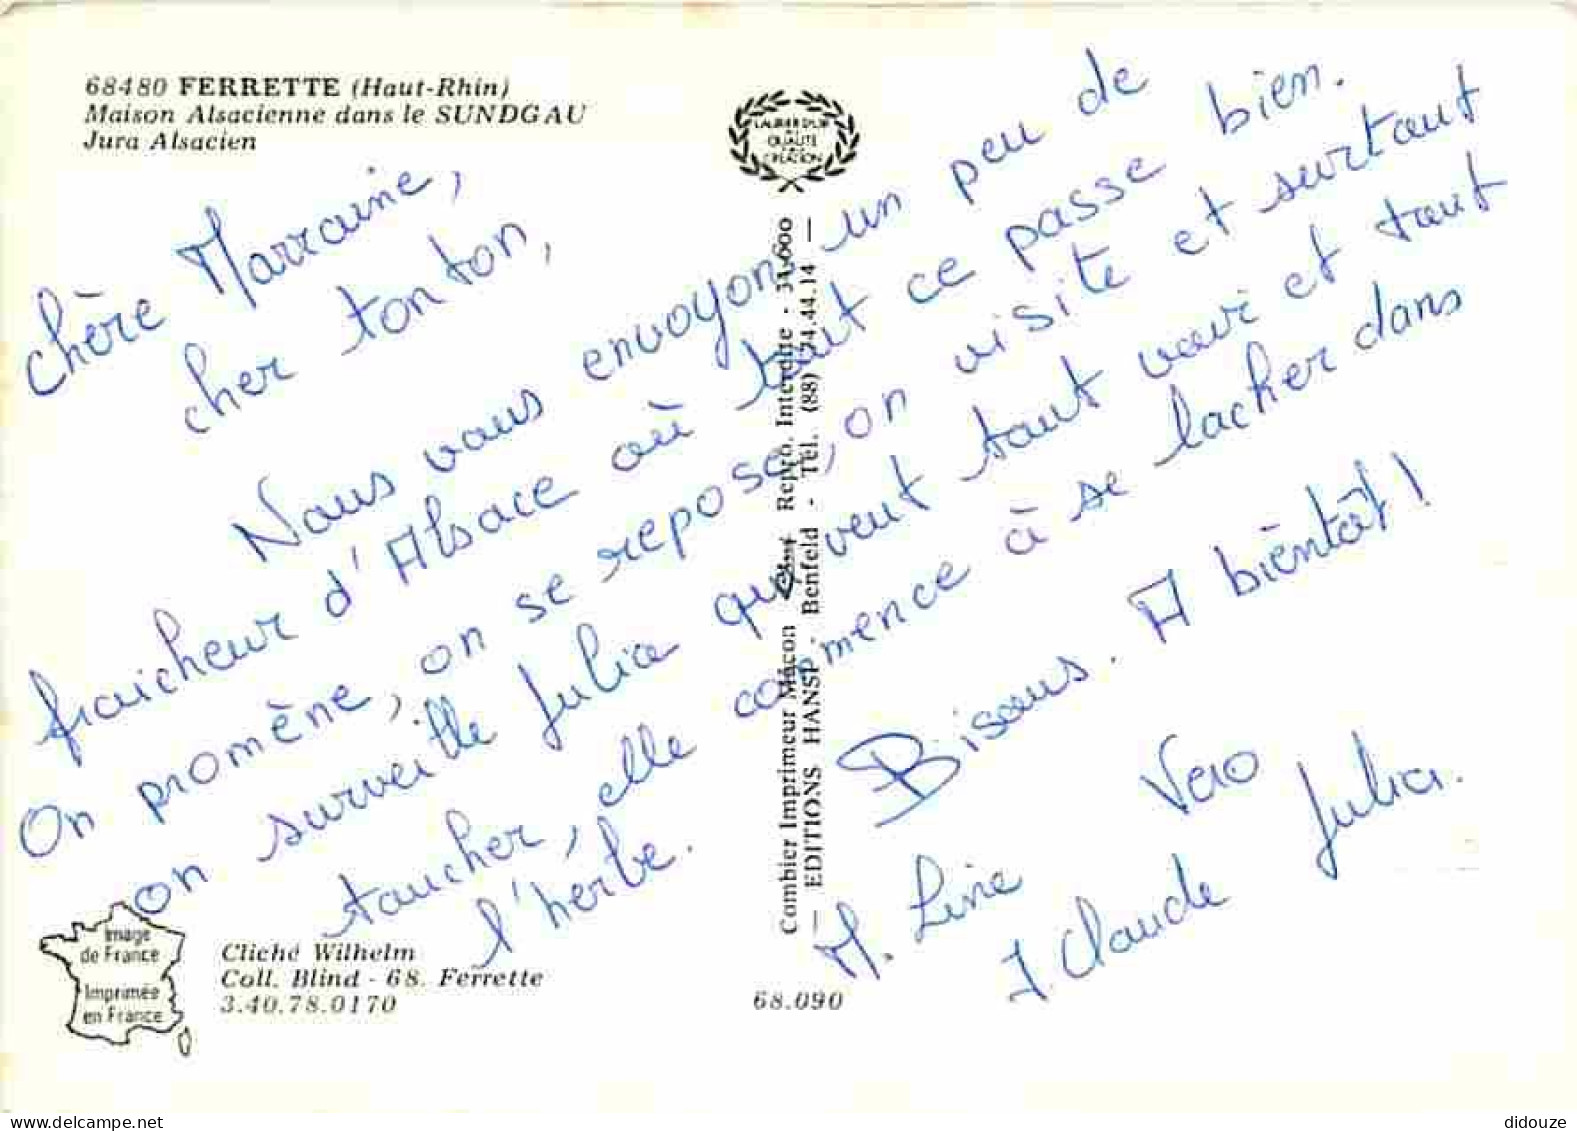 68480 FERRETTE (Haut-Rhin)
Maison Alsacienne dans le SUNDGAU
Jura Alsacien
LAURIER D'OR
DE LA
QUALITÉ
CRÉATION
Chère Marraine,
cher tonton,
Nous vous envoyons un peu de
fraicheur d'Alsace où tout ce passe bien.
On promène, on se repose, on visite et surtout
on surveille Julia qui veut tout voir et tout
toucher, elle commence à se lacher dans
l'herbe.
Bisous. A bientôt !
Vero
M. Line Julia.
J. Claude
Combier Imprimeur Mâcon Repro. Interdite - 34.600
— EDITIONS HANSI Benfeld - Tél. (88) 74.44.14 —
Image
de France
Imprimée
en France
Cliché Wilhelm
Coll. Blind - 68. Ferrette
3.40.78.0170
68.090
delcampe.net
didouze